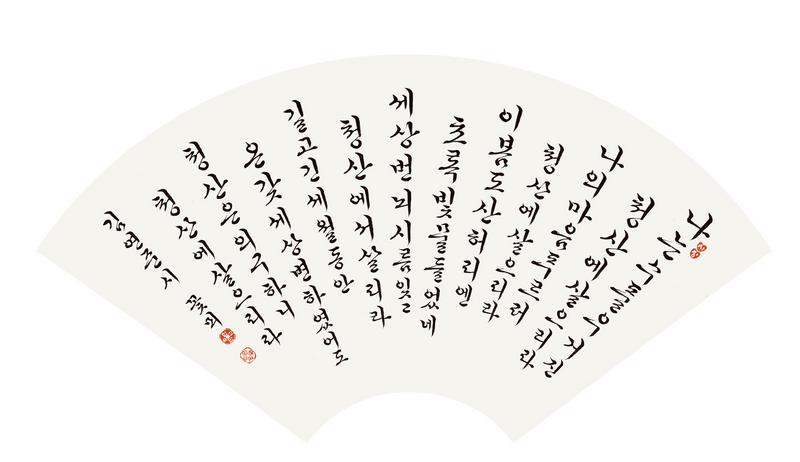 나는수풀우거진
청산에살으리라
나의마음푸르러
청산에살으리라
이봄도산허리엔
초록빛물들었네
세상번뇌시름잊고
청산에서살리라
길고긴세월동안
온갖세상변하였어도
청산은의구하니
청산에살으리라
김연준시 꽃뫼